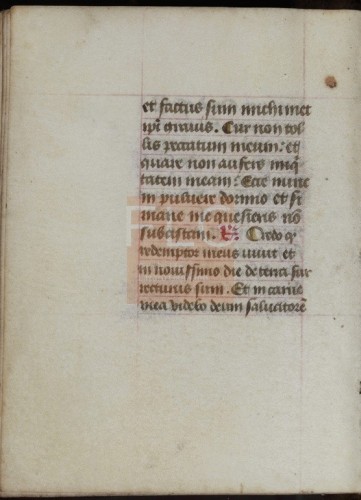 et factus sum michimet
ipi gravis. Cur non tol
lis peccatum meum: et
quare non aufers iniq̃
tatem meam: Ecce nunc
in pulvere dormio et si
mane me quesieris nõ
subsistam. R̃. Credo q
redemptor meus vivit et
in novissimo die de terra sur
recturus sum. Et in carne
mea videbo deum salvatorẽ